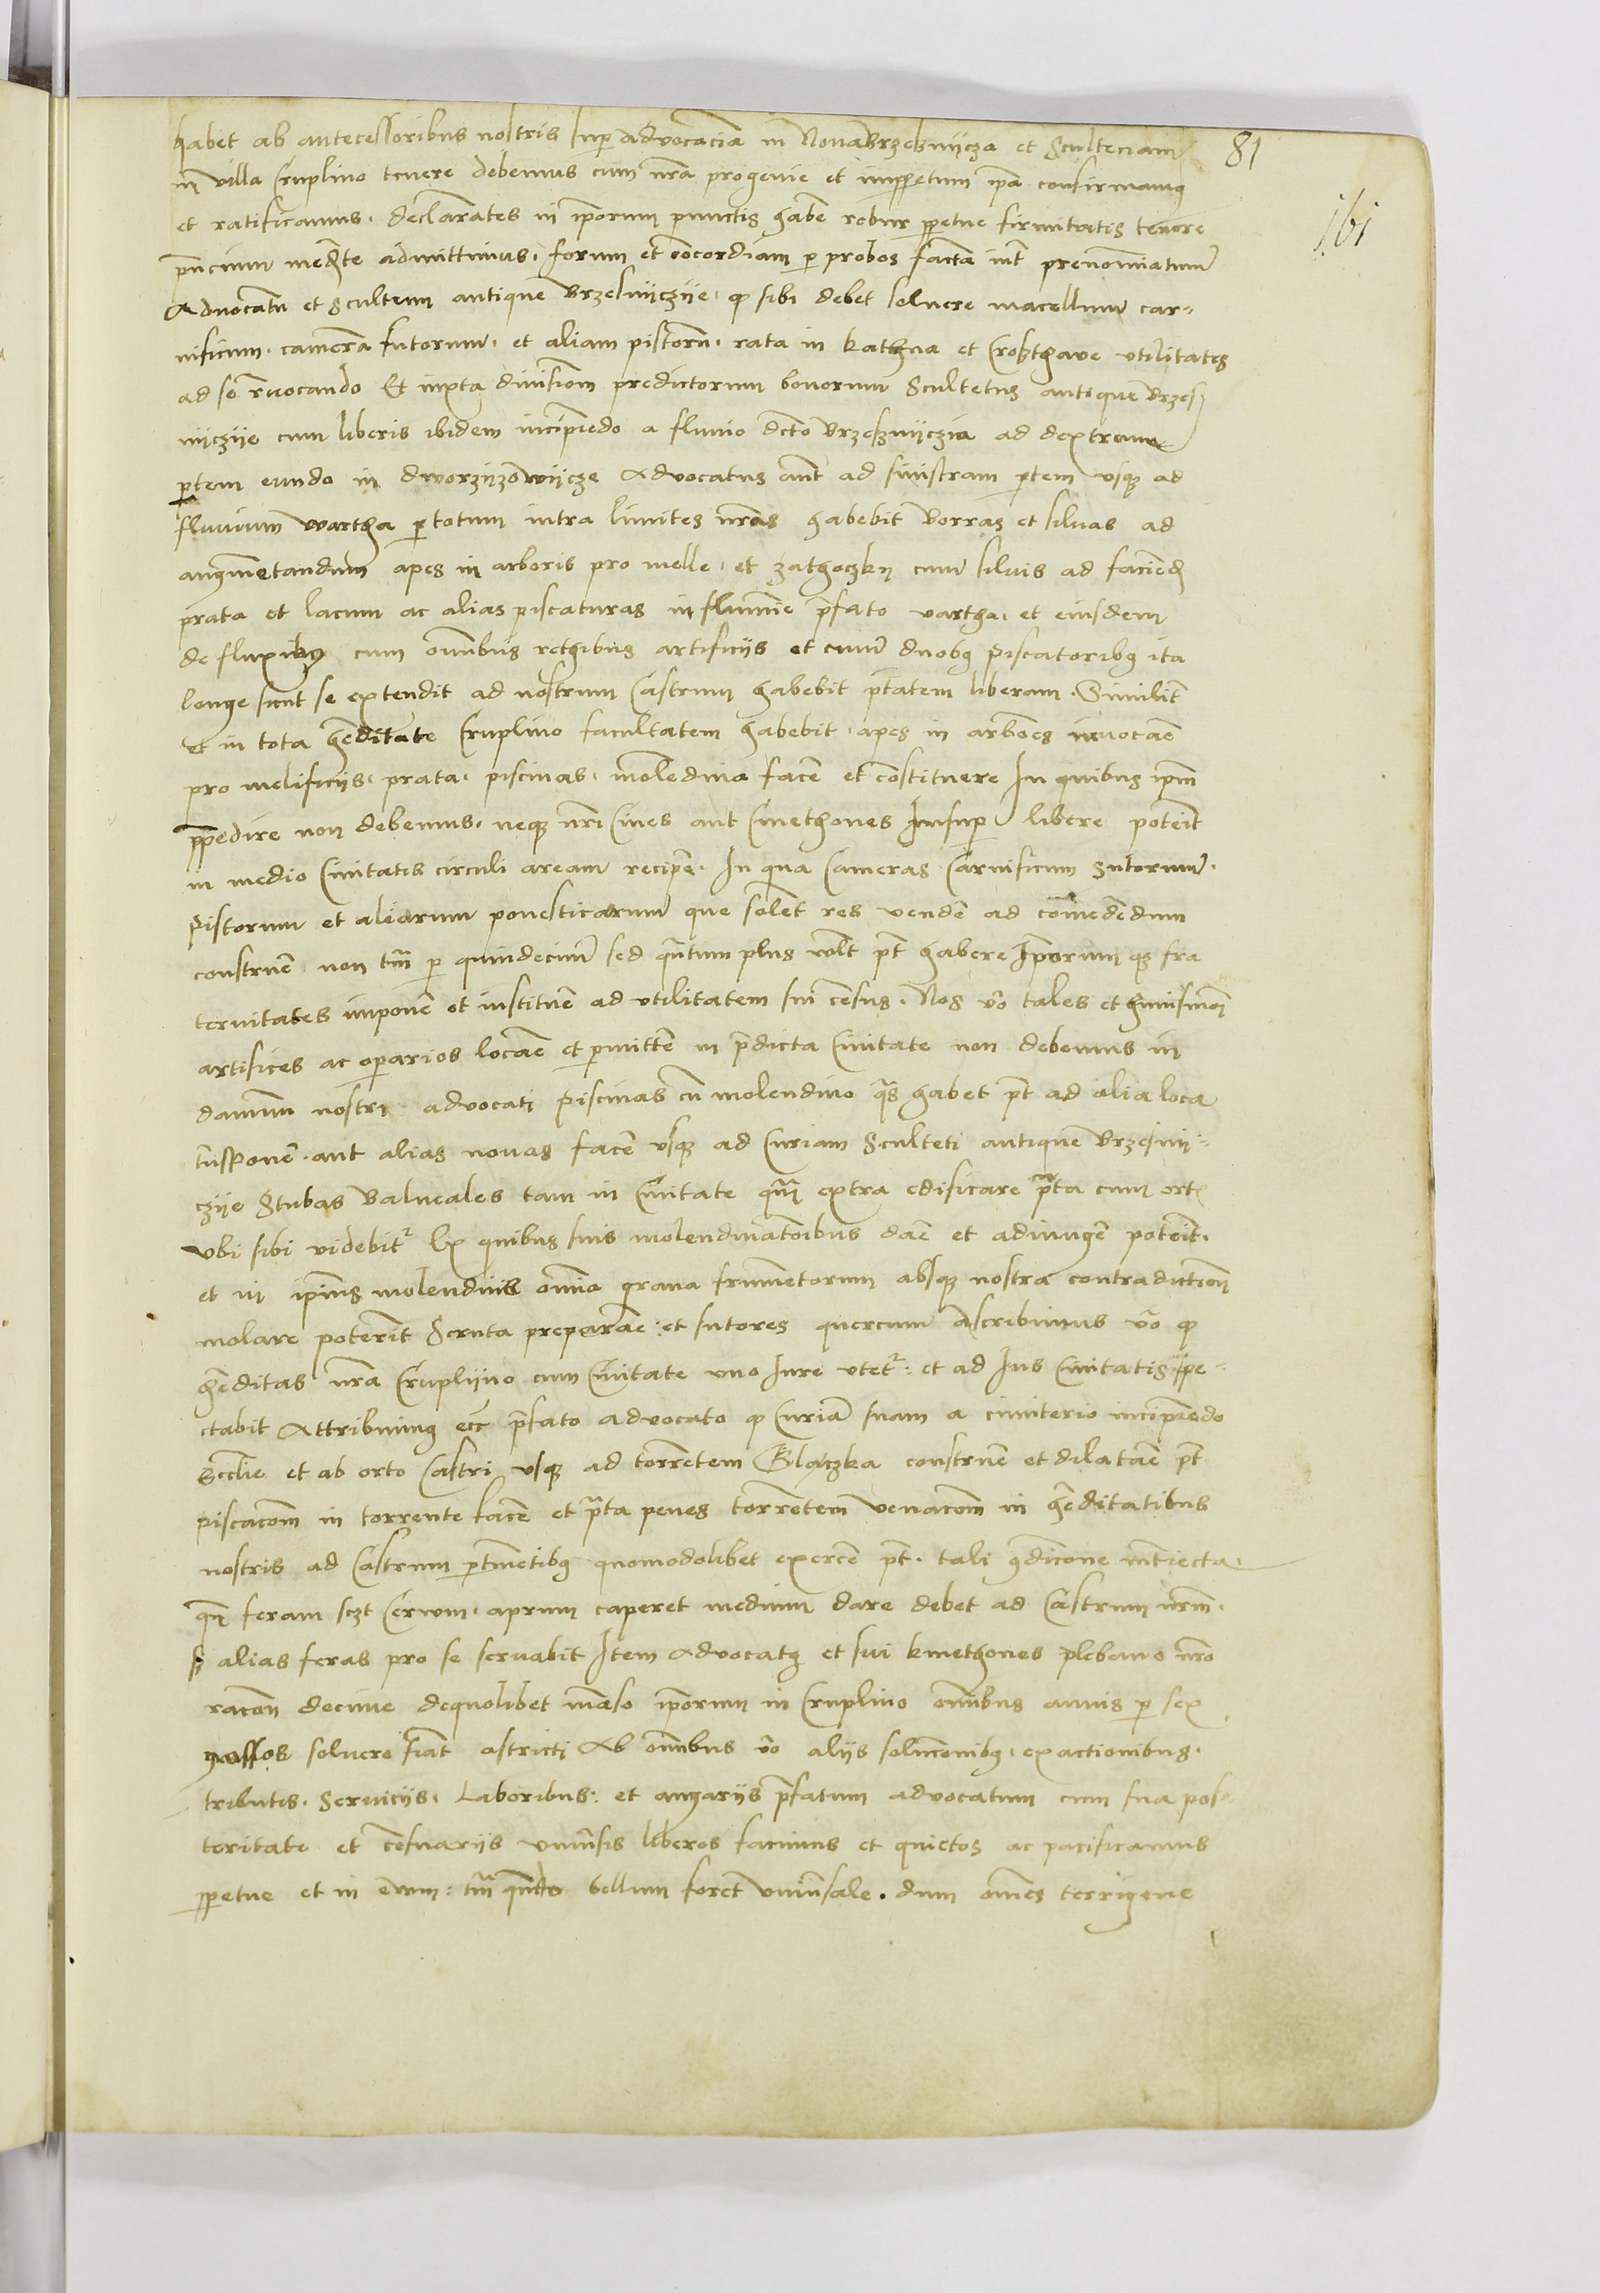 habet ab antecessoribus nostris sup advocacia in Nova Brzesznycza et Sculteciam 81
in villa Cruplino tenere debemus cum nra progenie et imppetuum ipa confirmamus
ibi
et ratificamus. declarates in iporum punctis habe robur ppetue firmitatis tenore
pncium mediate admittimus. forum et concordiam p probos facta int prenominatum
Advocatu et Scultetum antique Brzesnyczye. q sibi debet soluere macellum car-
nificum. camera sutorum. et aliam pistoru. rata in kathna et utilitates
ad se revocando Et iuxta divisiom predictorum bonorum Scultetus antique Brzes
nyczye cum liberis ibidem incipiedo a fluvio dcto Brzesznyczia ad dextram
ptem eundo in dworzyzowycze Advocatus aut ad sinistram ptem usq ad
fluvium wartha p totum intra limites nras habebit borras et siluas ad
augmetandum apes in arboris pro melle. et zathoczky cum siluis ad faciend
prata et lacum ac alias piscaturas in flumie pfato vartha. et eiusdem
de fluxibus cum omnibus rethibus artificiis et cum duobus piscatoribus ita
longe sicut se extendit ad nostrum Castrum habebit ptatem liberam. Similit
et in tota heditate Cruplino facultatem habebit. apes in arbores
pro melificiis. prata. piscinas. moledina face et constituere In quibus ipm
ppedire non debemus. neq nri Cives aut Cmethones Insup libere poterit
in medio Civitatis circuli aream recipe. In qua Cameras Carnificum Sutorum.
pistorum et aliarum ponesticarum que solet res vende ad comededum
construe non tm p quindecim sed qntum plus volt pt habere Iporum qs fra
ternitates impone et institue ad utilitatem sui cesus. Nos vo tales et
artifices ac oparios locae et pmitte in pdicta Civitate non debemus in
damnum nostri advocati piscinas cu molendino qs habet pt ad alia loca
tnspone. aut alias novas face usq ad Curiam Sculteti antique Brzesny-
czye Stubas balneales tam in Civitate qm extra edificare pta cum ort
ubi sibi videbit Ex quibus suis molendinatoribus dae et adiunge poterit.
et in ipius molendinis omia grana frumetorum absq nostra contradictiom
molare poterit Scruta preparae et sutores quercum Ascribimus vo q
heditas nra Cruplyno cum Civitate uno Iure utet. et ad Ius Civitatis spe-
ctabit Attribuimus ecc pfato advocato q Curia suam a cimiterio incipiedo
Ecclie et ab orto Castri usq ad torretem Glaczka construe et dilatae pt
piscacom in torrente face et pta penes torretem venacom in heditatibus
nostris ad Castrum ptinetibus quomodolibet exerce pt. tali condicone
qn feram sczt Cervum. aprum caperet medium dare debet ad Castrum nrm.
s alias feras pro se servabit Item Advocatus et sui kmethones plebano nro
racon decime dequolibet maso iporum in Cruplino omnibus annis p sex
grossos soluere siat astricti Ab omnibus vo aliis solucionibus. exactionibus.
tributis. Serviciis. Laboribus. et angariis pfatum advocatum cum sua pos
teritate et cesuariis univsis liberos facimus et quietos ac pacificamus
ppetue et in evum. tm qndo bellum foret univsale. dum omes terrigene